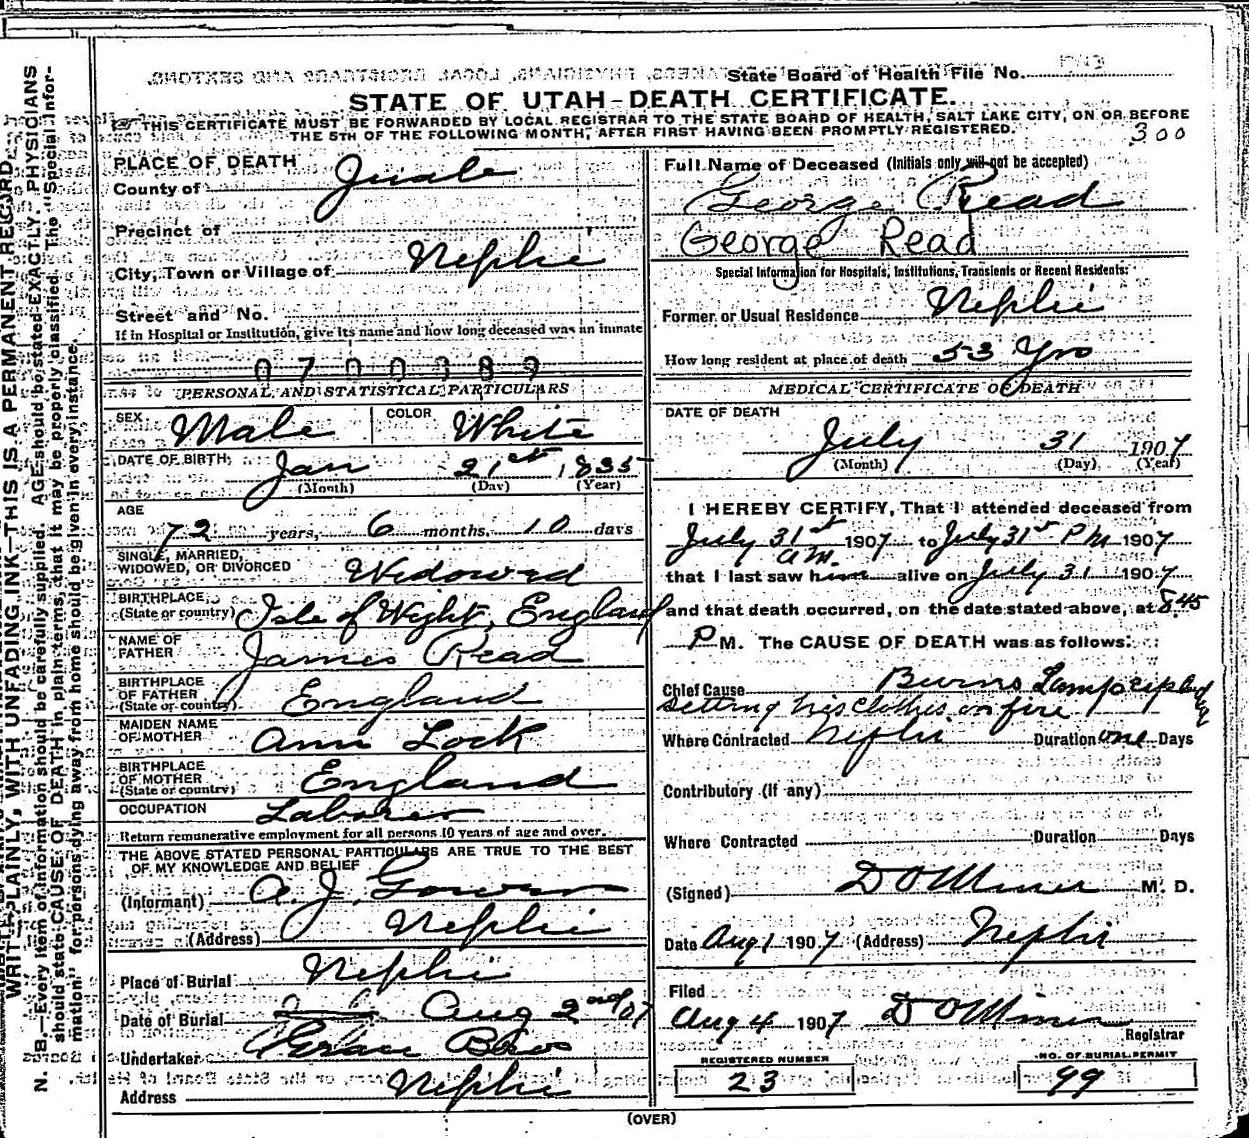 State Board of Health File No.
STATE OF UTAH-DEATH CERTIFICATE.
THIS CERTIFICATE MUST BE FORWARDED BY LOCAL REGISTRAR TO THE STATE BOARD OF HEALTH, SALT LAKE CITY, ON OR BEFORE
THE 5TH OF THE FOLLOWING MONTH, AFTER FIRST HAVING BEEN PROMPTLY REGISTERED.
300
PLACE OF DEATH
County of Juab
Precinct of
City, Town or Village of Nephi
Street and No.
If in Hospital or Institution, give its name and how long deceased was an inmate
0700389
PERSONAL AND STATISTICAL PARTICULARS
SEX Male COLOR White
DATE OF BIRTH Jan 21st 1835
(Month) (Day) (Year)
AGE
72 years, 6 months, 10 days
SINGLE, MARRIED,
WIDOWED, OR DIVORCED Widowed
BIRTHPLACE
(State or country) Isle of Wight, England
NAME OF
FATHER James Read
BIRTHPLACE
OF FATHER
(State or country) England
MAIDEN NAME
OF MOTHER Ann Lock
BIRTHPLACE
OF MOTHER
(State or country) England
OCCUPATION Laborer
Return remunerative employment for all persons 10 years of age and over.
THE ABOVE STATED PERSONAL PARTICULARS ARE TRUE TO THE BEST
OF MY KNOWLEDGE AND BELIEF
(Informant) A. J. Gowers
(Address) Nephi
Place of Burial Nephi
Date of Burial Aug 2nd/07
Undertaker Bros
Address Nephi
Full Name of Deceased (Initials only will not be accepted)
George Read
George Read
Special Information for Hospitals, Institutions, Transients or Recent Residents:
Former or Usual Residence Nephi
How long resident at place of death 53 Yrs
MEDICAL CERTIFICATE OF DEATH
DATE OF DEATH
July 31 1907
(Month) (Day) (Year)
I HEREBY CERTIFY, That I attended deceased from
July 31st am. 1907 to July 31st P M 1907
that I last saw him alive on July 31 1907
and that death occurred, on the date stated above, at 8.45
P M. The CAUSE OF DEATH was as follows:
Chief Cause Burns Lamp exploded
setting his clothes on fire
Where Contracted Nephi Duration one Days
Contributory (If any)
Where Contracted Duration Days
(Signed) D O Miner M. D.
Date Aug 1 1907 (Address) Nephi
Filed
Aug 4 1907 D O Miner
Registrar
REGISTERED NUMBER
23
NO. OF BURIAL PERMIT
99
(OVER)
N. B.—Every item of information should be carefully supplied. AGE should be stated EXACTLY. PHYSICIANS
should state CAUSE OF DEATH in plain terms, that it may be properly classified. The "Special Infor-
mation" for persons dying away from home should be given in every instance.
WRITE PLAINLY, WITH UNFADING INK—THIS IS A PERMANENT RECORD.